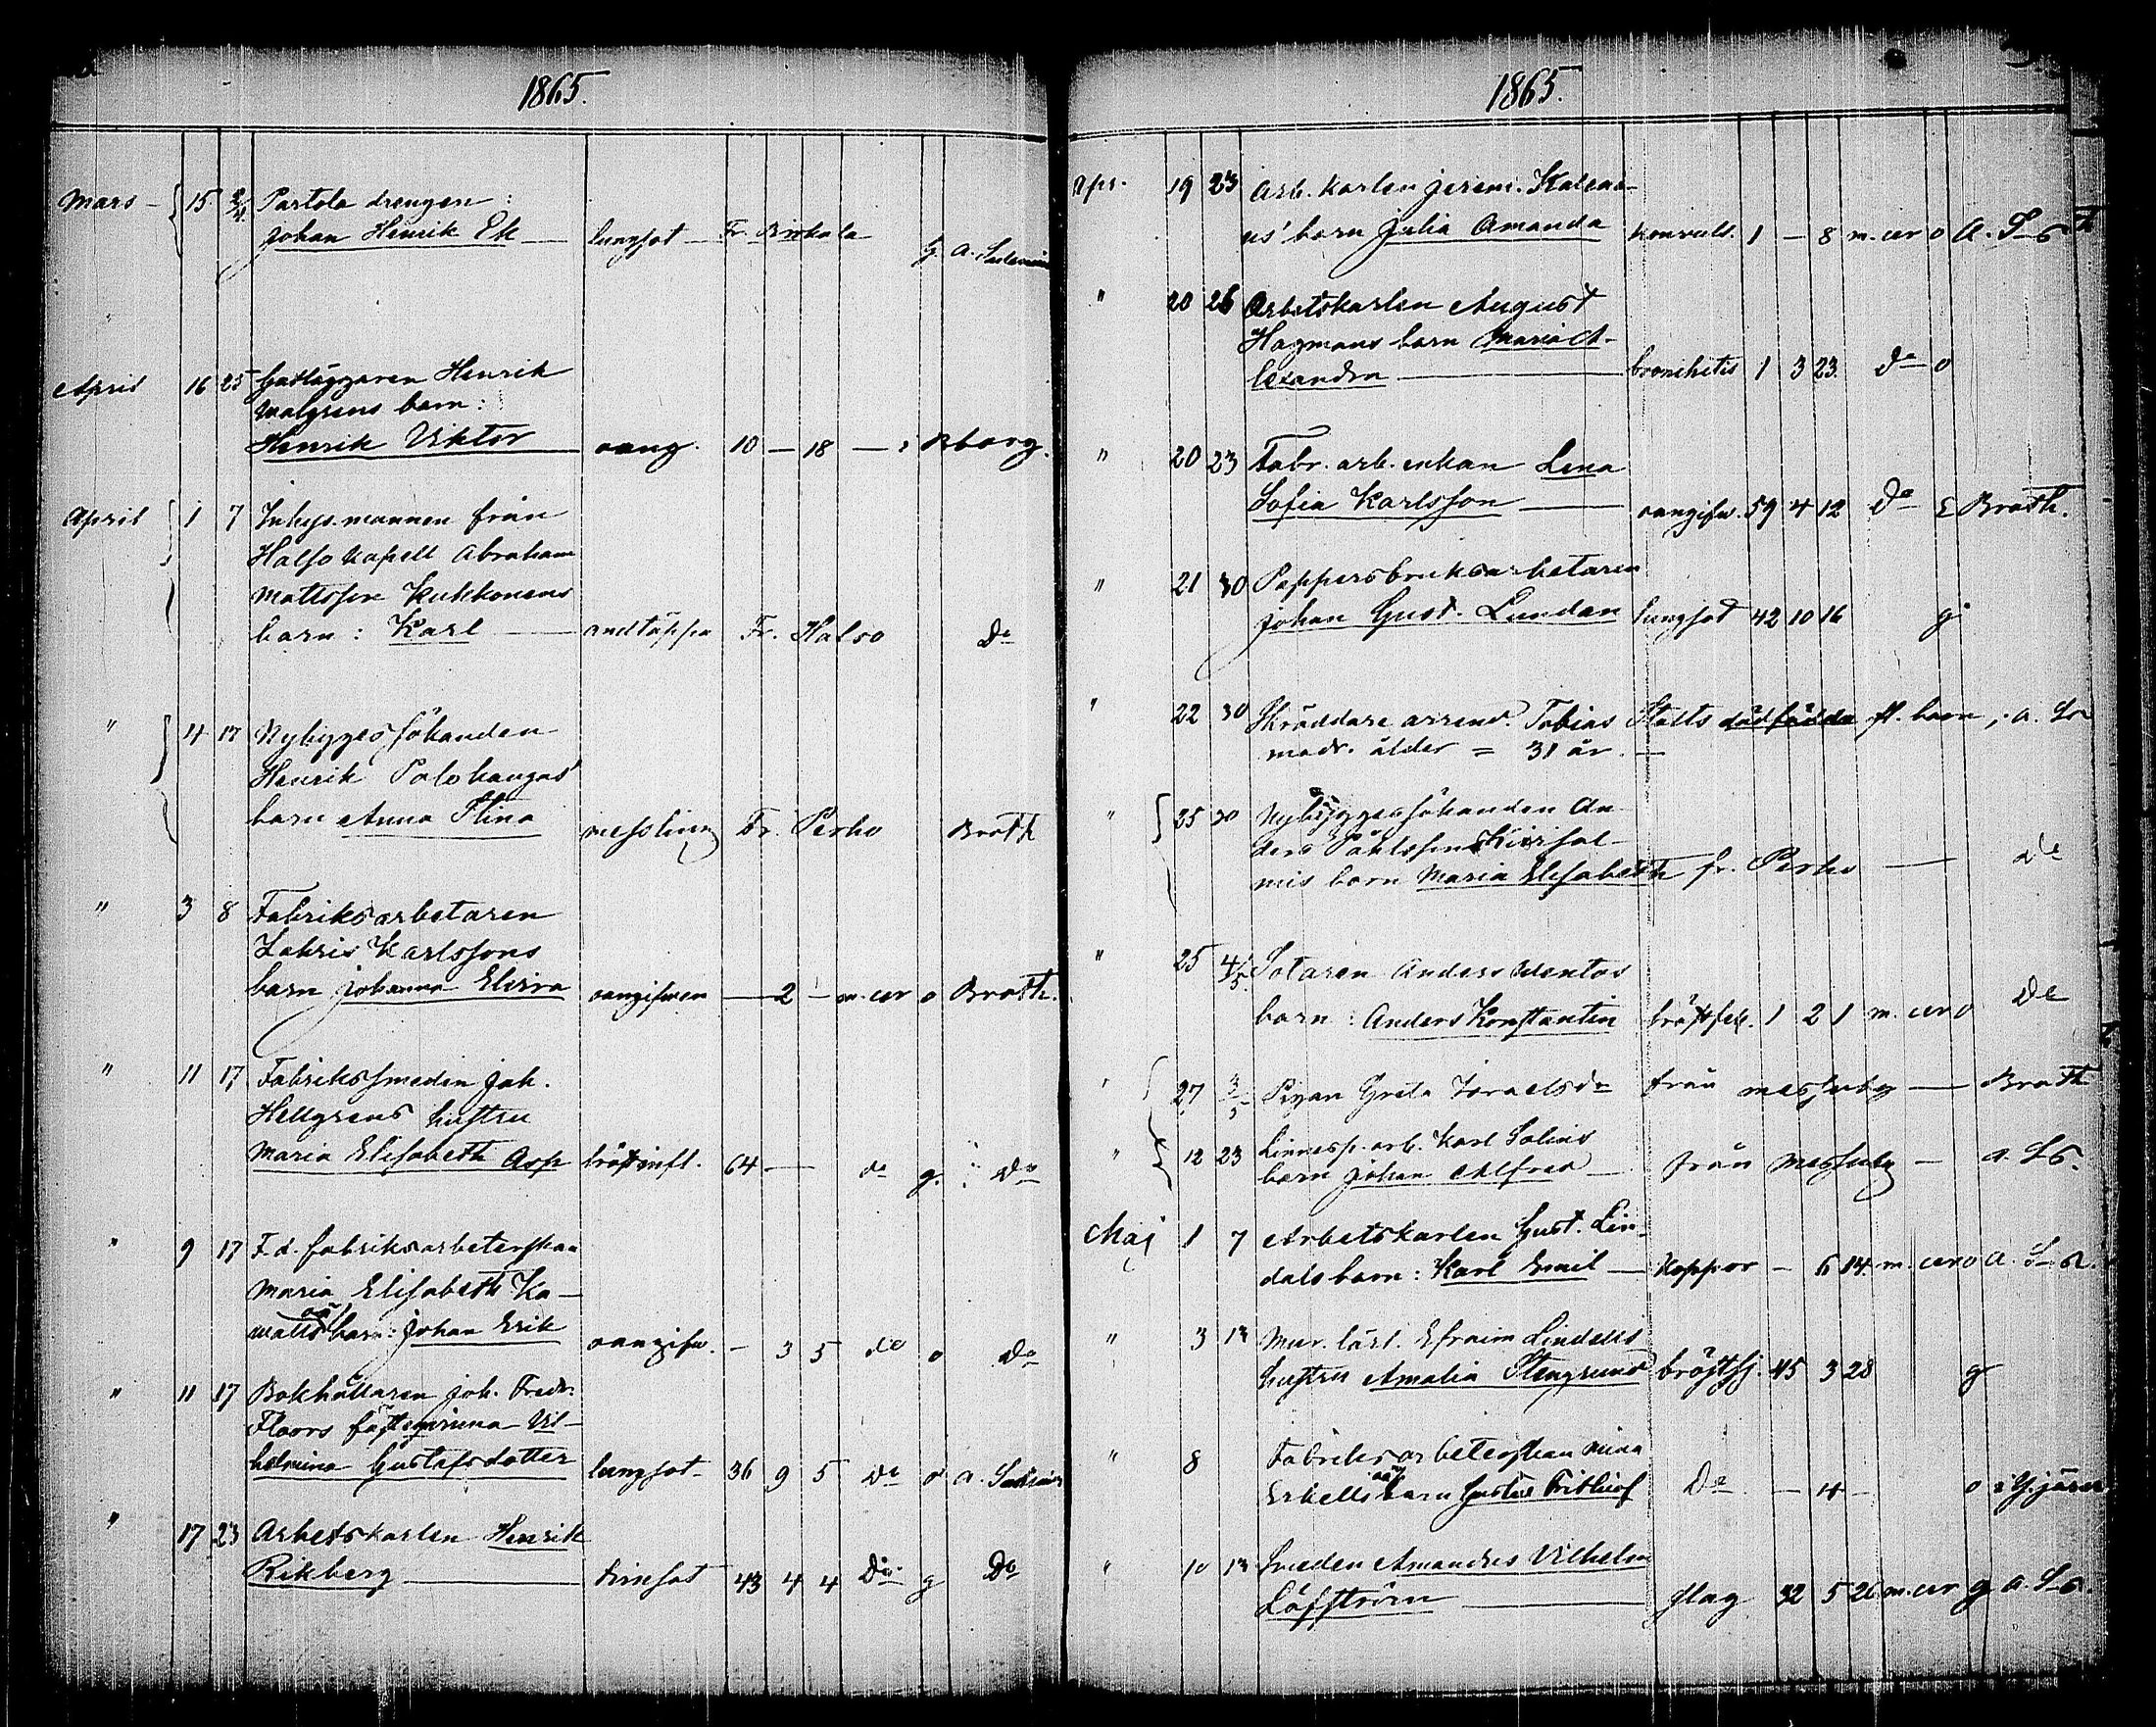 1865.
Mars - 15 2/4 Partola drengen:
Johan Henrik Ek — lungsot — Fr. Birkala g. A.
April 16 25 Gatläggaren Henrik
Malgrens barn:
Henrik Viktor oang. 10 — 18 —
April 1 7 Inhys.mannen från
Halso kapell Abraham
Matisson Kukkonens
barn: Karl — andtäppa Fr. Halso Do
" 4 17 Nybyggessökanden
Henrik Palokangas'
barn Anna Stina messling Fr. Perho Broth
" 3 8 Fabriksarbetaren
Zakris Karlssons
barn Johanna Elvira oangifven — 2 — m. cer o Broth.
" 11 17 Fabrikssmeden Joh.
Hellgrens hustru
Maria Elisabeth Asp bröstinfl. 64 — do g. Do
" 9 17 F.d. fabriksarbeterskan
Maria Elisabeth Ka-
watts oä barn: Johan Erik oangifv. — 3 5 do o Do
" 11 17 Bokhållaren Joh. Fredr.
Floors fästeqvinna Vil-
helmina Gustafsdotter lungsot 36 9 5 Do o A.
" 17 23 Arbetskarlen Henrik
Rikberg — 43 4 4 Do g Do
1865.
Apr. 19 23 Arb.karlen Jerem.
us' barn Julia Amanda konvuls. 1 — 8 m. cer o A. S-s
" 20 26 Arbetskarlen August
Hagmans barn Maria A-
lexandra — bronchitis 1 3 23 do o
" 20 23 Fabr. arb. enkan Lena
Sofia Karlsson — oangifv. 59 4 12 Do E Broth.
" 21 30 Pappersbruksarbetaren
Johan Gust. Lundan lungsot 42 10 16 g
" 22 30 Skräddare arrend. Tobias Stolts dödfödda fl. barn, A.
modr. ålder = 31 år. —
" 25 30 Nybyggessökanden An-
ders Påhlssons Kiirsal-
mis barn Maria Elisabeth fr. Perho — do
" 25 4/5 Sotaren Anders
barn: Anders Konstantin bröstsjk. 1 2 1 m. cer o Do
" 27 3/5 Pigan Greta Israelsdr från Messuby — Broth
" 12 23 Linnesp. arb. Karl Salins
barn Johan Alfred — från Messuby — A. Ss.
Maj 1 7 Arbetskarlen Gust. Lin-
dals barn: Karl Emil — koppor — 6 14 m. cer o A. S-s.
" 3 13 Mur. lärl. Efraim Lindells
hustru Amalia Stengrund bröstsj. 45 3 28 g
" 8 Fabriksarbeterskan Mina
Erkells oä barn Gustaf Frithiof Do — 4 — o
" 10 13 Smeden Amandus Vilhelm
Löfström — slag 32 5 26 m. cer g A. S-s.